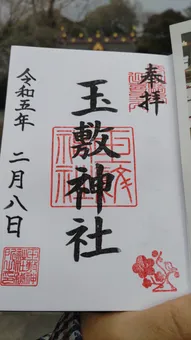 奉拝
玉敷神社
令和五年 二月八日